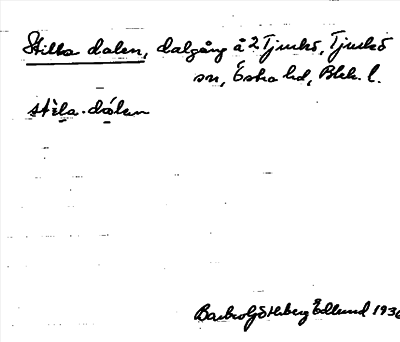 Stilla dalen, dalgång å 2 Tjurkö, Tjurkö
sn, Östra hd, Blek. l.
stìla-dálen
Barbro Götherberg Edlund 1936